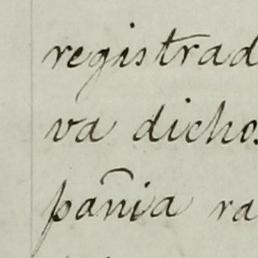 registrad
va dichos
pañia ra